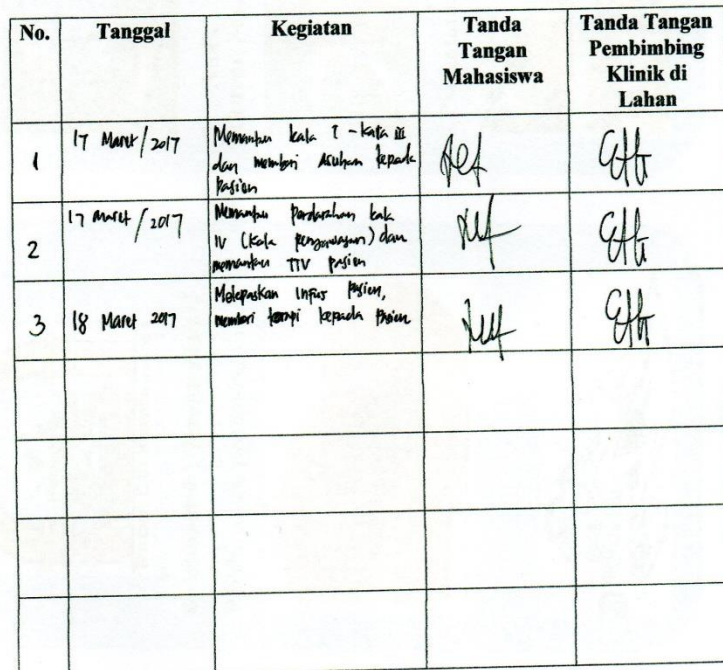 No. Tanggal Kegiatan Tanda Tangan Mahasiswa Tanda Tangan Pembimbing Klinik di Lahan
1 17 Maret / 2017 Memantau kala I - Kala iii
dan memberi Asuhan kepada
pasien
2 17 Maret / 2017 Memantau Perdarahan kala
IV (Kala pengawasan) dan
memantau TTV pasien
3 18 Maret 2017 Melepaskan Infus Pasien,
memberi terapi kepada Pasien